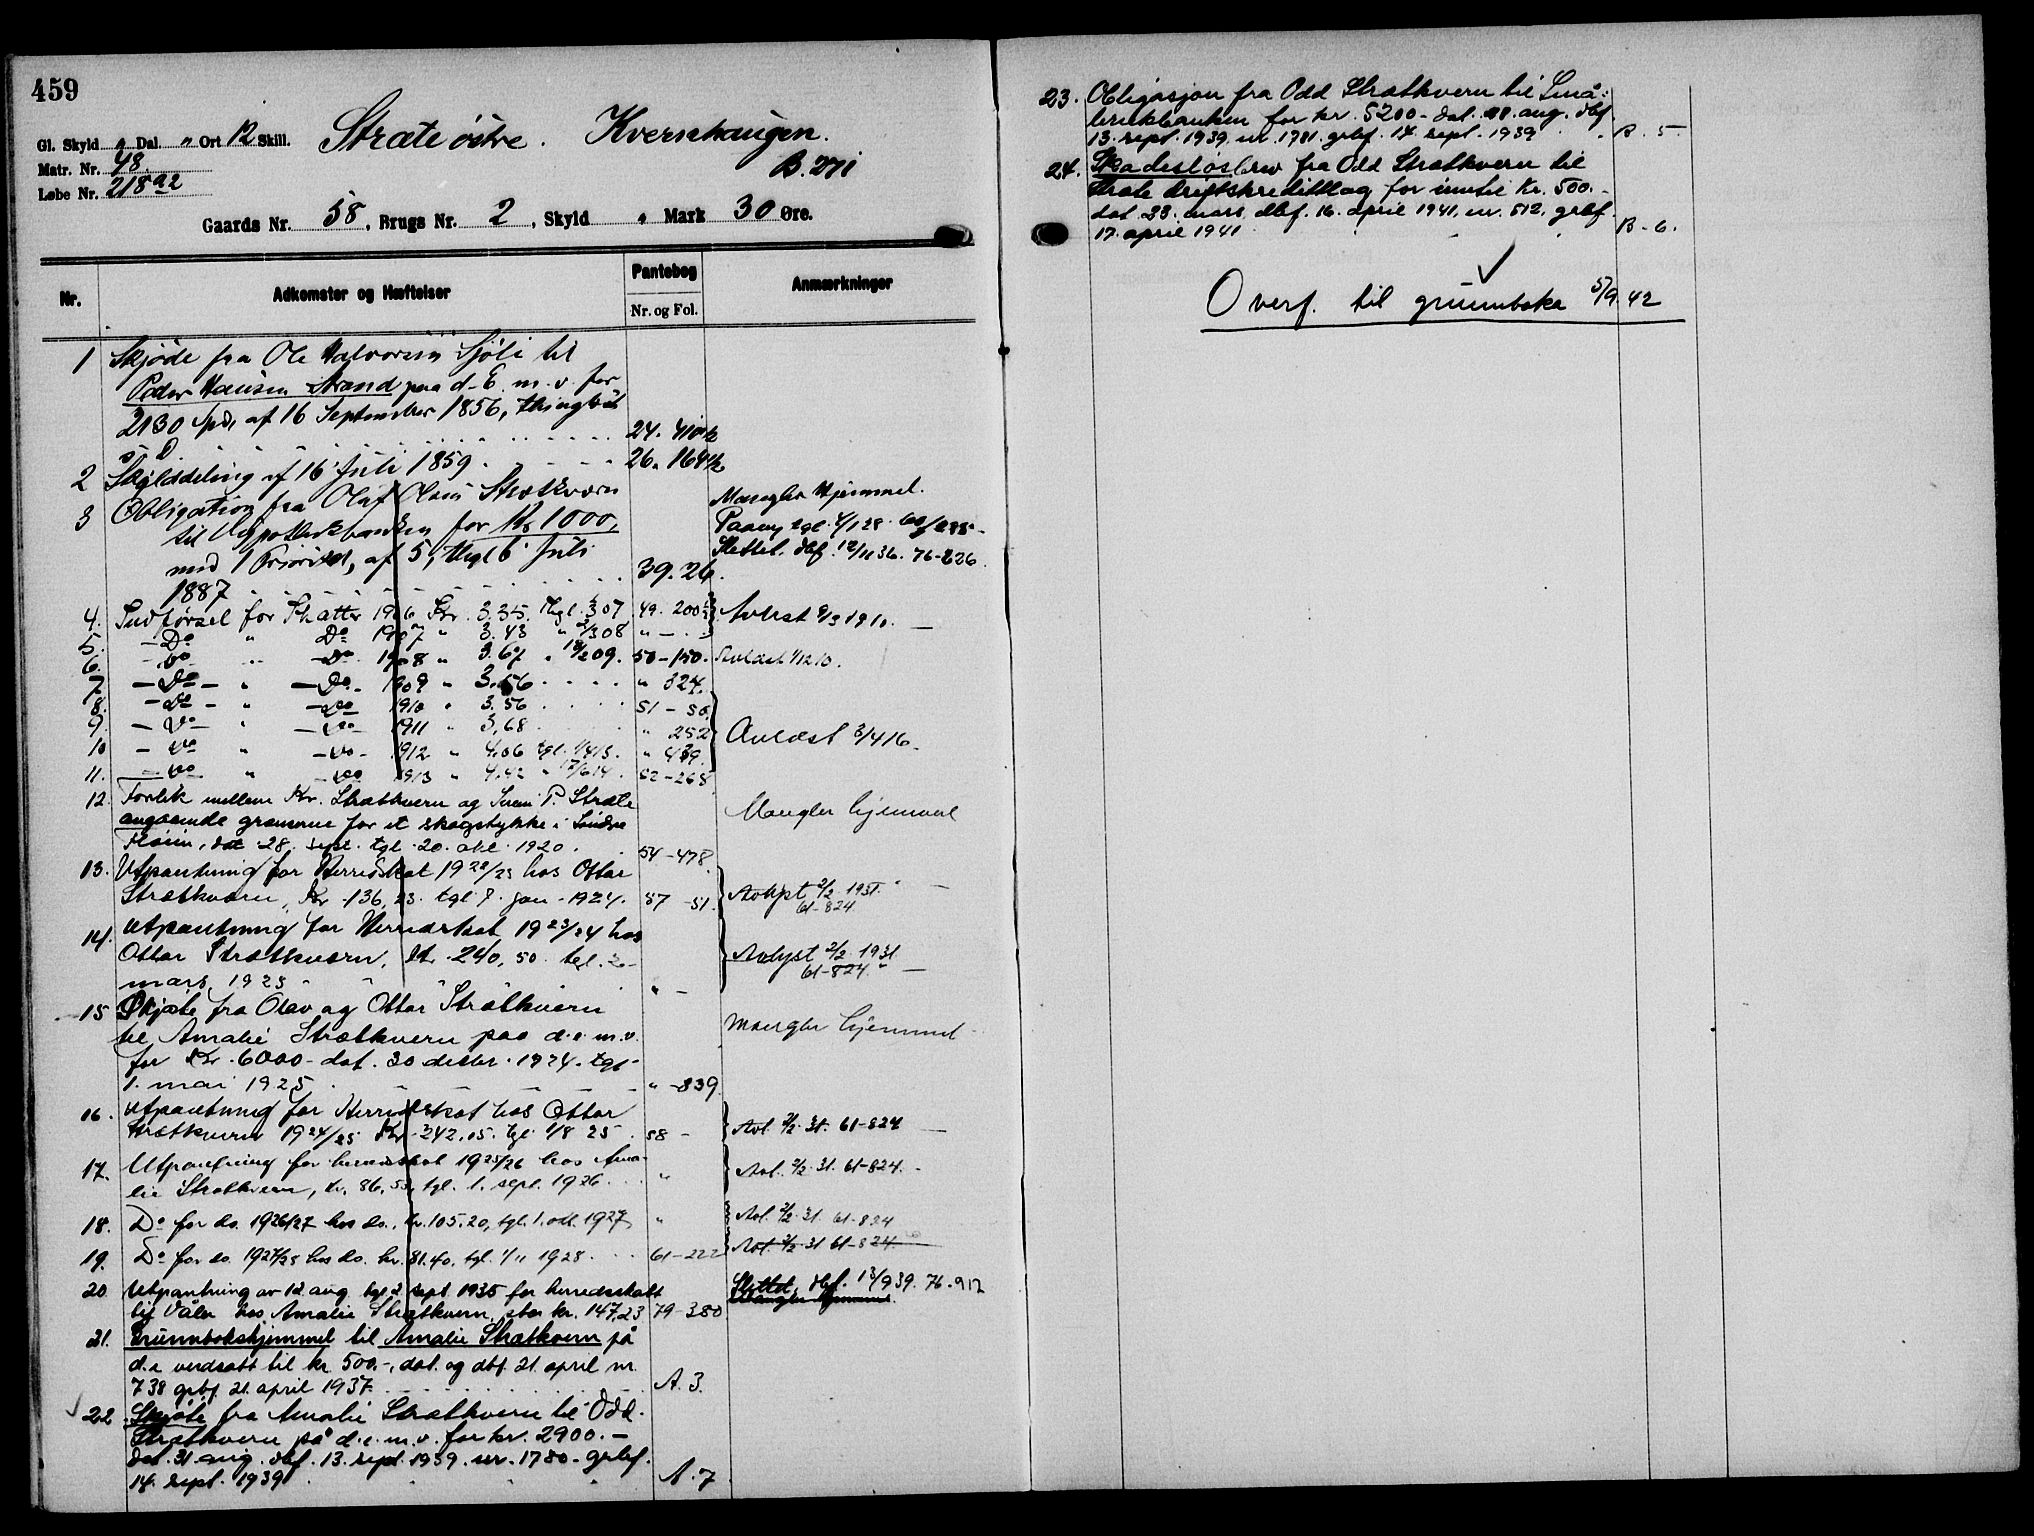 459
Gl. Skyld " Dal. " Ort 12 Skill. Stræte östre. Kvernhaugen.
Matr. Nr. 48. B. 271
Løbe Nr. 218 a2
Gaards Nr. 58, Brugs Nr. 2, Skyld " Mark 30 Øre.
Nr. Adkomster og Hæftelser Pantebog Nr. og Fol. Anmærkninger
1 Skjøde fra Ole Halvorsen Sjöli til
Peder Hansen Strand paa d. E. m. v. for
2130 Spd, af 16 September 1856, thinglæst
s. D. 24. 410
2 Skylddeling af 16 Juli 1859. 26. 164
3 Obligation fra Olaf Olsen Strætkværn Mangler Hjemmel.
til Hypothekbanken for Kr 1000,
med 1 Prioritet, af 5, thgl 6 Juli Slettet. dbf. 12/11 36. 76-826.
1887 39. 26.
4. Indførsel for Skatter 1906 Kr. 3.35. Thgl. 307 49. 200 Avlæst 9/3 1910.
5. - Do " Do 1907 " 3.43 " 2/308 " -
6. - Do " - Do 1908 " 3.67 " 209. 50-150. Avlæst 1/12 10.
7 - Do - " - Do - 1909 " 3.56 " 324.
8. - Do - " - Do 1910 " 3.56 51 - 50.
9. - Do - " - Do - 1911 " 3,68 " 252 Avlæst 3/4 16.
10 - Do " - Do - 1912 " 4,06 tgl. 1/4 13. " 439.
11. - Do " - Do 1913 " 4.42 " 17/6 14. 52-268
12. Forlik mellem Kr. Strætkvern og Svein P. Stræte
angaaende grænserne for et skogstykke i Søndre Mangler hjemmel
Flöien, dat 28. sept. tgl. 20. okt. 1920. 54-478
13. Utpantning for Herredskat 1922/23 hos Ottar
Strætkværn, Kr. 136,23. tgl 7. jan. 1924. 57 -51. Avlyst 2/2 1931.
61-824
14. Utpantning for Herredskat 1923/24 hos
Ottar Strætkværn, Kr. 240,50 tgl. 2 Avlyst 2/2 1931
mars 1925 " - 61-824.
15 Skjøte fra Olav og Ottar Strætkvern
til Amalie Strætkvern paa d. e. m. v. Mangler hjemmel
for Kr. 6000 - dat. 30 desbr. 1924. tgl
1. mai 1925 " -839.
16. Utpantning for Herredskat hos Ottar
Strætkvern 1924/25 Kr. 342.05. tgl 1/8 25 58 - Avl. 2/2. 31. 61-824
17. Utpantning for herredskat 1925/26 hos Ama-
lie Strætkvern, kr. 86,53, tgl. 1. sept. 1926. " Avl. 2/2. 31. 61-824.
18. Do for do. 1926/27 hos do., kr. 105.20, tgl. 1. okt. 1927 " Avl. 2/2. 31. 61-824
19. Do for do. 1927/28 hos do. kr. 81.40, tgl. 1/11 1928. 61-222 Avl. 2/2. 31 61-824.
20. Utpantning av 12. aug. tgl 2. sept. 1935 for herredsskatt Slettet. dbf. 13/9 39. 76-912
til Våler hos Amalie Strætkvern, stor kr. 147,23 79-380 Mangler hjemmel.
21. Grunnbokshjemmel til Amalie Strætkvern på
d.e. verdsatt til kr. 500.-, dat. og dbf. 21. april nr.
738 grbf. 21. april 1937. A. 3.
22. Skjøte fra Amalie Strætkvern til Odd
Strætkvern på d. e. m. v. for kr. 2900.-
dat. 31 aug. dbf. 13. sept. 1939. nr. 1780 - grbf.
14. sept. 1939 A. 7
23. Obligasjon fra Odd Strætkvern til Små-
brukbanken for kr. 5200- dat. 28. aug. dbf
13. sept. 1939. nr. 1781. grbf. 14. sept. 1939 B. 5
24. Skadesløsbrev fra Odd Strætkvern til
Stræte driftskredittlag for inntil kr. 500.-
dat. 23. mars, dbf. 16. april 1941, nr. 512, grbf.
17. april 1941 B - 6.
Overf. til grunnboka 5/9. 42